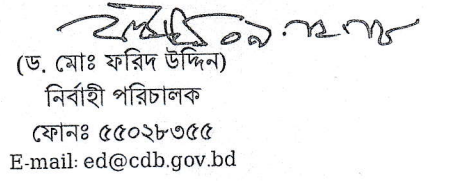 (ড. মোঃ ফরিদ উদ্দিন)
নির্বাহী পরিচালক
ফোনঃ ৫৫০২৮৩৫৫
E-mail: ed@cdb.gov.bd